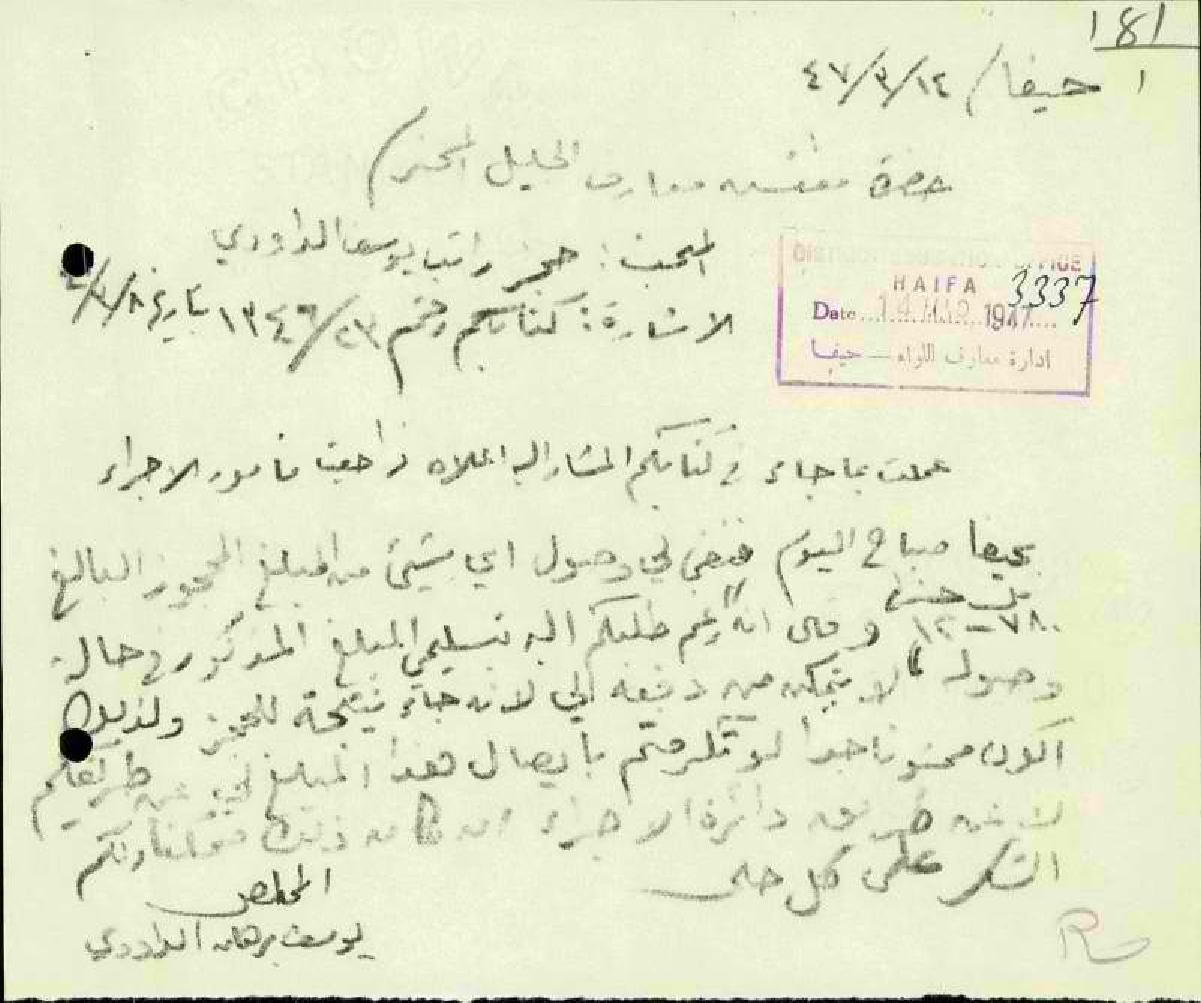 181
حيفا / ١٤/٣/٤٧
حضرة مفتش معارف الجليل المحترم
المبحث : حجز راتب يوسف الداودي
الاشارة : كتابكم رقم ١٣٤٦/٢٣ تاريخ ٤/٣/٨
DISTRICT EDUCATION OFFICE
HAIFA
3337
Date 14 MAR 1947
ادارة معارف اللواء — حيفا
عملت بما جاء في كتابكم المشار اليه اعلاه فراجعت مأمور الاجراء
بحيفا صباح اليوم فنفى لي وصول اي شيئ من المبلغ المحجوز البالغ
٧٨٠-١٢ وقال انه رغم طلبكم اليه تسليمي المبلغ المذكور في حالة
وصوله لا يتمكن من دفعه الي لانه جاء نتيجة للحجز ولذلك
اكون ممنونا جدا لو تكرمتم بايصال هذا المبلغ لي عن طريقكم
لا عن طريق دائرة الاجراء ان كان ذلك
الشكر على كل حال
المخلص
يوسف برهان الداودي